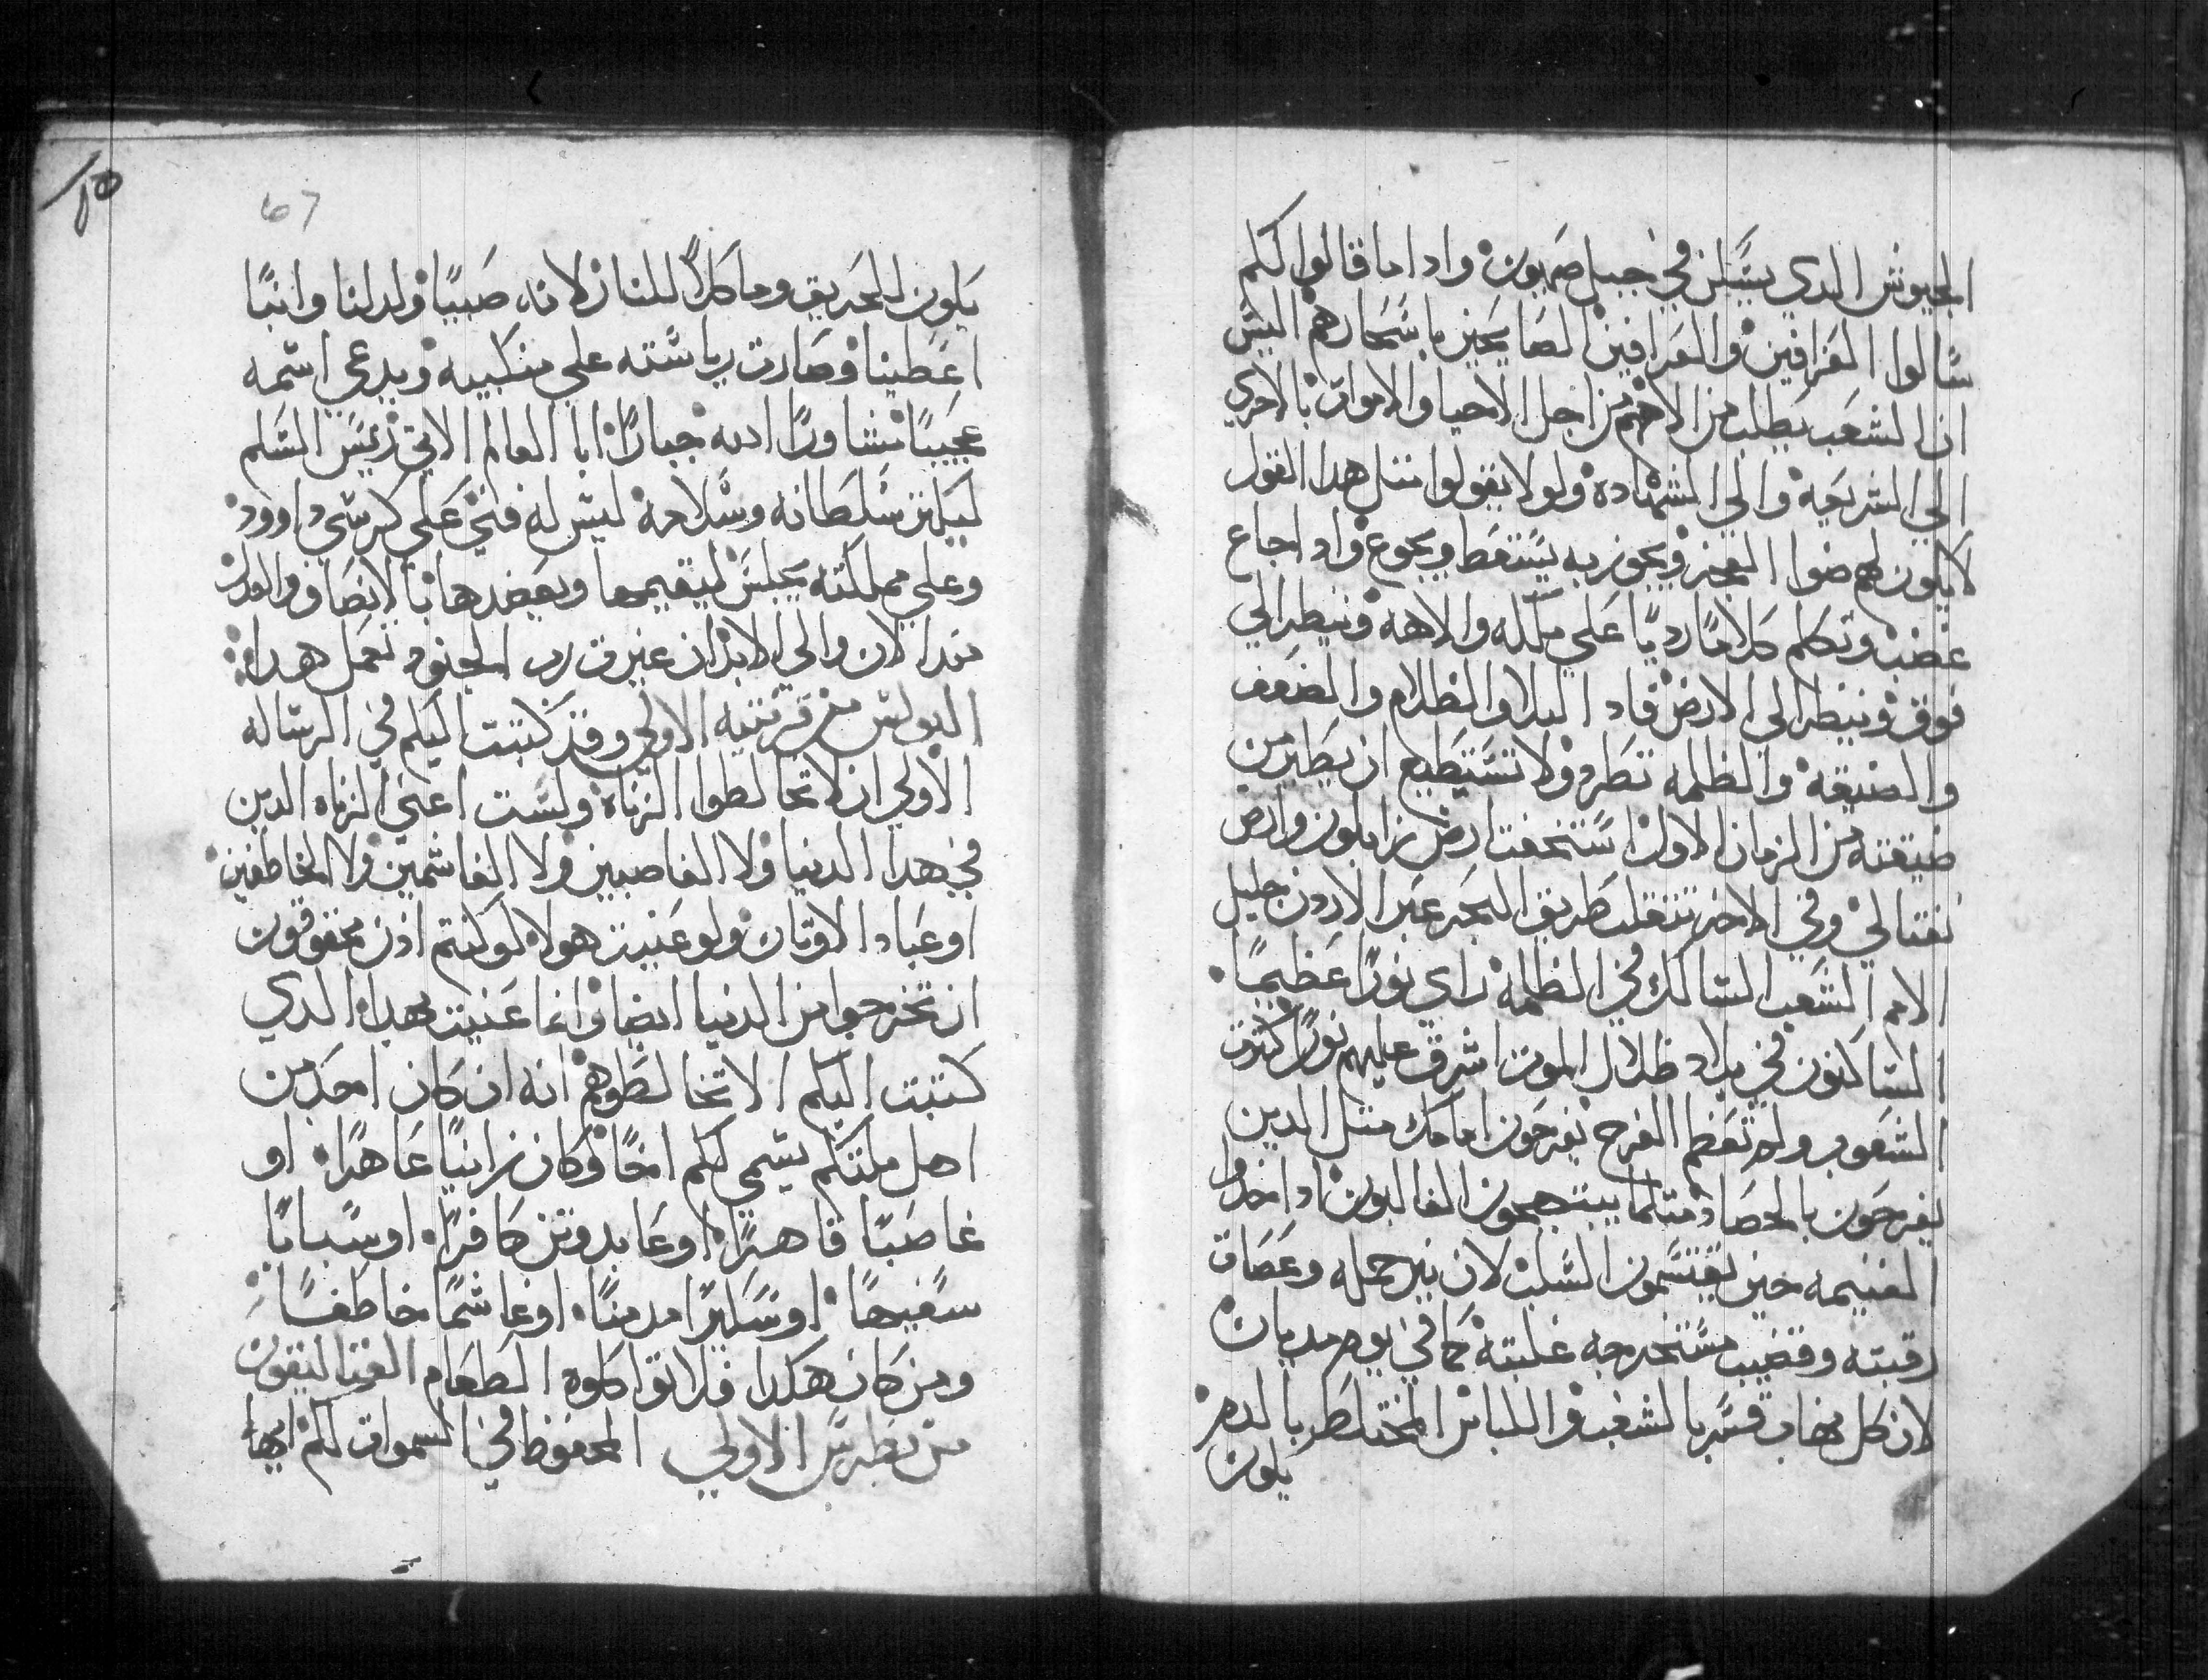 الجيوش الدي يسكن في جبل صهيون واداما قالوا لكم
سالوا العزافين والعرافين الصايحين باسحارهم اليس
ان الشعب يطلب من الاههم من اجل الاحيا والاموات بالاحري
الي الشريعه والي الشهاده ولو لا يقولوا متل هدا القول
لا يكون لهم ضوا الفجر ويجوز به يسقط ويجوع وادا جاع
غضب وتكلم كلاما رديا علي ملكه والاهه وينيطر الي
فوق وينيطر الي الارض فادا البلا والظلام والضعف
والضيقه والظلمه تطرد ولا تستطيع ان يطير من
ضيقته من الزمان الاول استخفت ارض زابلون وارض
نفتالي وفي الاخر تتقل طريق البحر عبر الاردن جليل
الامم الشعب السالك في الظلمه راي نورا عظيما
الساكنون في بلاد ظلال الموت اشرق عليهم نورا كترت
الشعوب ولم تعظم الفرح يفرحون امامك متل الدين
يفرحون بالحصاد متلما يبتهجون الغالبون ادا اخدوا
الغنيمه حين يقتسمون السلب لان نير حمله وعصاة
رقبته وقضيب مستخرجه غلبته كما في يوم مديان
لان كل نهاب قسر بالشغب واللباس المختلط بالدم
يكون
67
١٥
يكون الحريق وماكلا للنار لانه صبيا ولد لنا وابنا
اعطينا وصارت رياسته علي منكبيه ويدعي اسمه
عجيبا مشاورا الله جبارا ابا العالم الاتي رئيس السلم
ليكثر سلطانه وسلامه ليس له فني علي كرسي داوود
وعلي مملكته يجلس ليقيمها ويعضدها بالانصاف والعدل
مند الان والي الابد ان غيرة رب الجنود تعمل هدا
البولس من قرنتيه الاولي وقد كتبت اليكم في الرساله
الاولي ان لا تخالطوا الزناه ولست اعني الزناه الدين
في هدا الدنيا ولا الغاصبين ولا الغاشمين ولا الخاطفين
او عباد الاوتان ولو عنيت هولا لكنتم ادن محقوقون
ان تخرجوا من الدنيا ايضا وانما عنيت بهدا الدي
كتبت اليكم الا تخالطوهم انه ان كان احد من
اهل ملتكم يسمي لكم اخا وكان زانيا عاهرا او
غاصبا قاهرا او عابد وتن كافرا او سبابا
سفيها او سكيرا مدمنا او غاشما خاطفا
ومن كان هكدا فلا تواكلوه الطعام القتاليقون
من بطرس الاولي المحفوظ في السموات لكم ايها